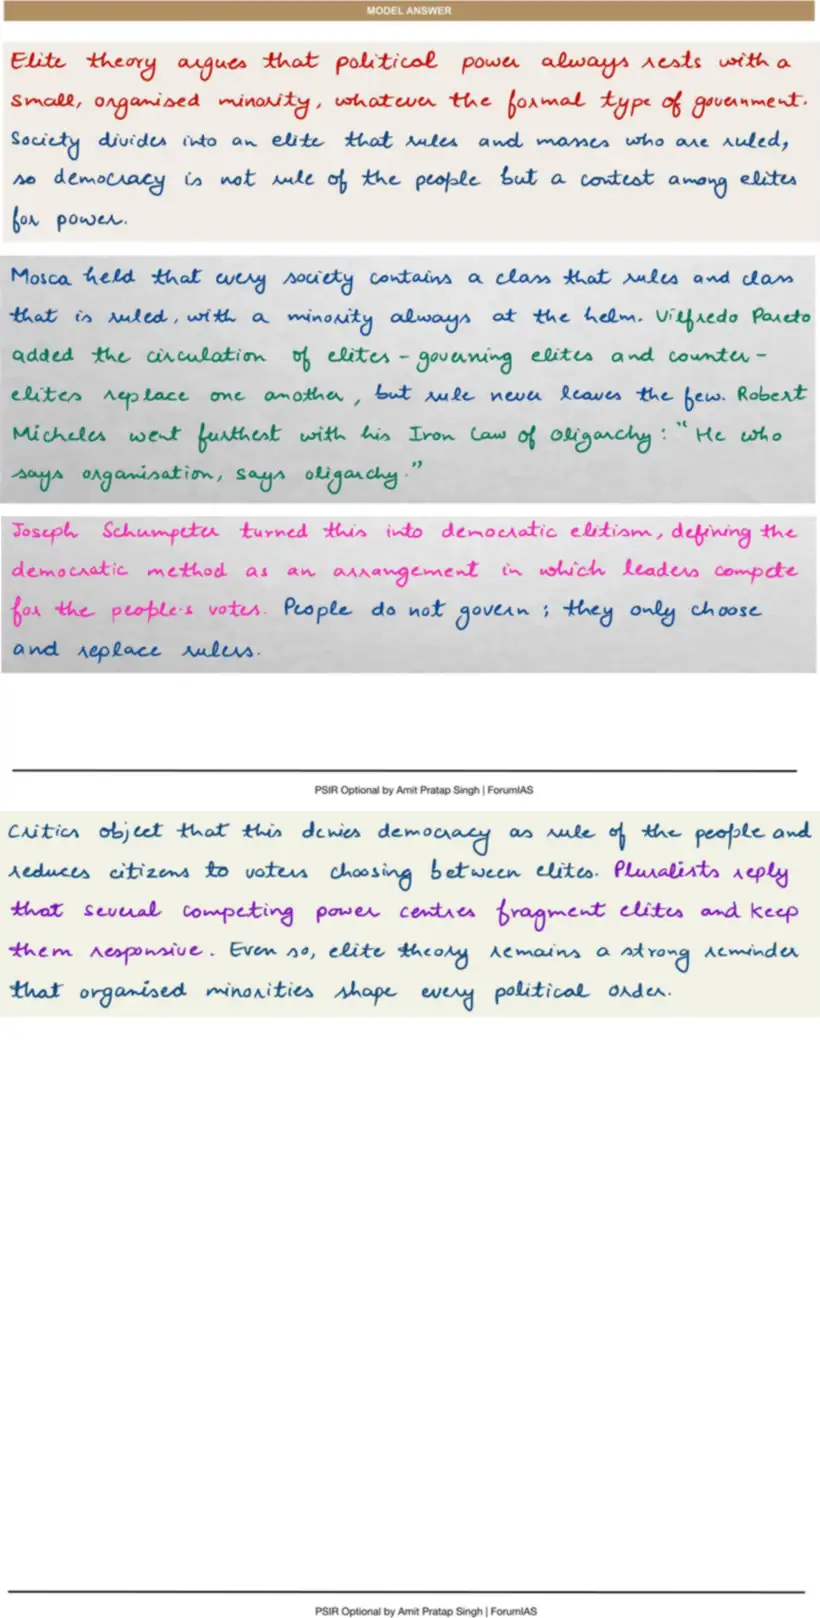 MODEL ANSWER
Elite theory argues that political power always rests with a
small, organised minority, whatever the formal type of government.
Society divides into an elite that rules and masses who are ruled,
so democracy is not rule of the people but a contest among elites
for power.
Mosca held that every society contains a class that rules and class
that is ruled, with a minority always at the helm. Vilfredo Pareto
added the circulation of elites - governing elites and counter-
elites replace one another, but rule never leaves the few. Robert
Micheles went furthest with his Iron Law of Oligarchy: "He who
says organisation, says oligarchy."
Joseph Schumpeter turned this into democratic elitism, defining the
democratic method as an arrangement in which leaders compete
for the people's votes. People do not govern; they only choose
and replace rulers.
PSIR Optional by Amit Pratap Singh | ForumIAS
Critics object that this denies democracy as rule of the people and
reduces citizens to voters choosing between elites. Pluralists reply
that several competing power centres fragment elites and keep
them responsive. Even so, elite theory remains a strong reminder
that organised minorities shape every political order.
PSIR Optional by Amit Pratap Singh | ForumIAS